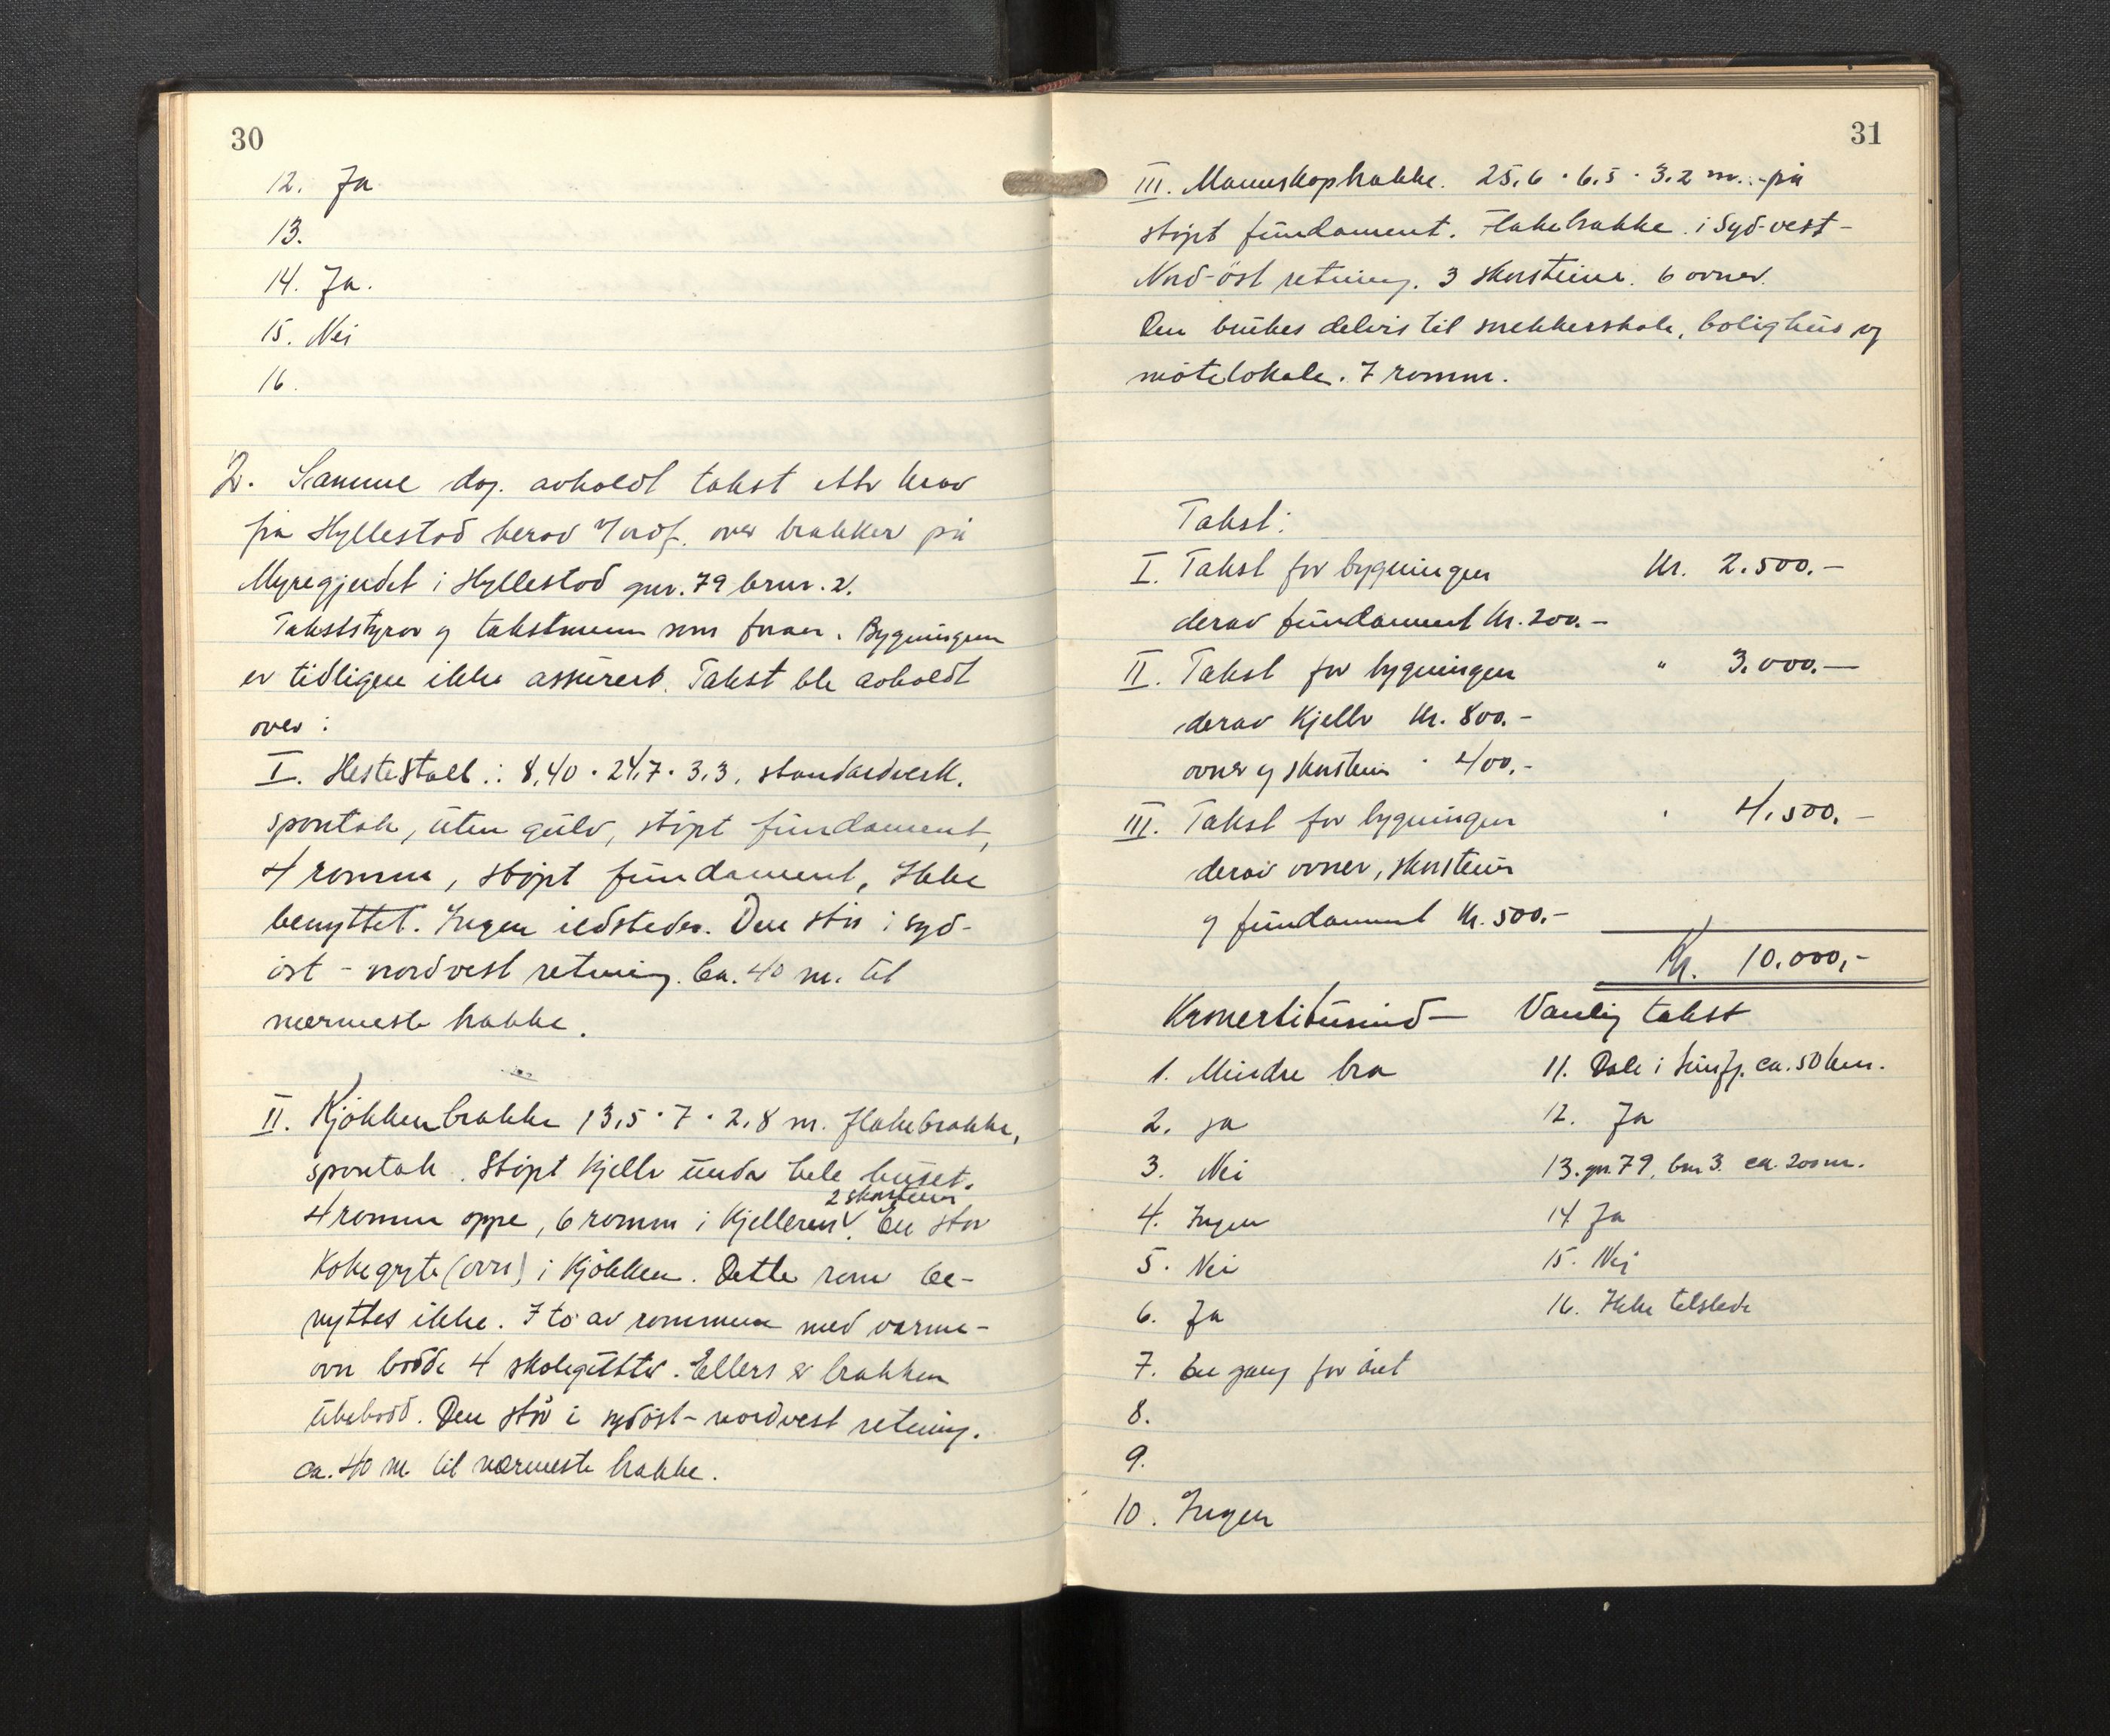 30
12. Ja
13.
14. Ja.
15. Nei
16.
2. Samme dag. avholdt takst etter krav
fra Hyllestad herad over brakker på
Myregjerdet i Hyllestad gnr. 79 brnr. 2.
Takststyrer og takstmenn som foran. Bygningen
er tidligere ikke assurert. Takst ble avholdt
over:
I. Hestestall: 8,40 · 24,7 · 3,3, standardverk.
spontak, uten gulv, støpt fundament,
4 romm, støpt fundament, Ikke
benyttet. Ingen ildsteder. Den står i syd-
öst - nordvest retning. Ca. 40 m. til
nærmeste brakke.
II. Kjökkenbrakke 13,5 · 7 · 2,8 m. flakebrakke,
spontak. Støpt kjeller under hele huset.
2 skorsteiner
4 romm oppe, 6 romm i kjelleren. En stor
Kokegryte (ovn) i kjökken. Dette rom be-
nyttes ikke. I to av rommene med varme-
ovn bodde 4 skolegutter. Ellers er brakken
ubebodd. Den står i sydöst - nordvest retning.
ca. 40 m. til nærmeste brakke.
31
III. Mannskapbrakke. 25,6 · 6,5 · 3,2 m. på
støpt fundament. Flakebrakke. i Syd-vest-
Nord-öst retning. 3 skorsteine. 6 ovner.
Den brukes delvis til snekkerskole, bolighus og
möteLokale. 7 romm.
Takst:
I. Takst for bygningen Kr. 2.500.-
derav fundament Kr. 200.-
II. Takst for bygningen " 3.000.-
derav kjeller Kr. 800.-
ovner og skorstein " 400.-
III. Takst for bygningen " 4.500.-
derav ovner, skorstein
og fundament Kr. 500.-
Kr. 10.000,-
Kronertitusind- Vanlig takst
1. Mindre bra
2. ja
3. Nei
4. Ingen
5. Nei
6. Ja
7. En gang for året
8.
9.
10. Ingen
11. Dale i Sunnfj. ca. 50 km.
12. Ja
13. gnr 79, bnr 3. ca. 200 m.
14 Ja
15. Nei
16. Ikke tilstede